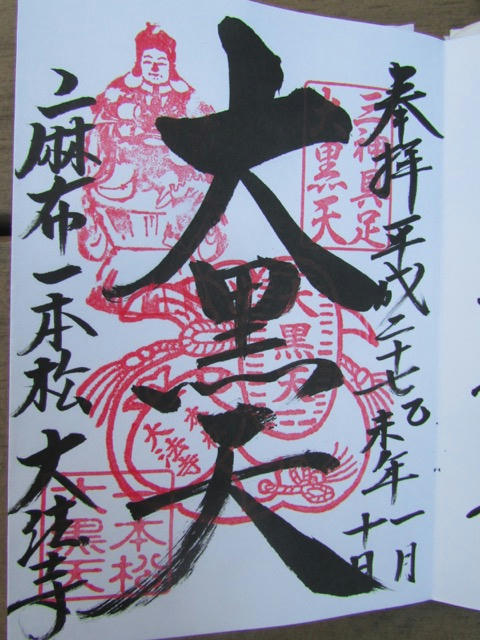 奉拝 平成二十七乙未年一月十日
三神具足
大黒天
大黒天
大黒天
大法寺
一本松
大黒天
麻布一本松 大法寺